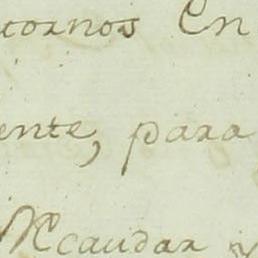 tornos En
ente, para
Recaudar y